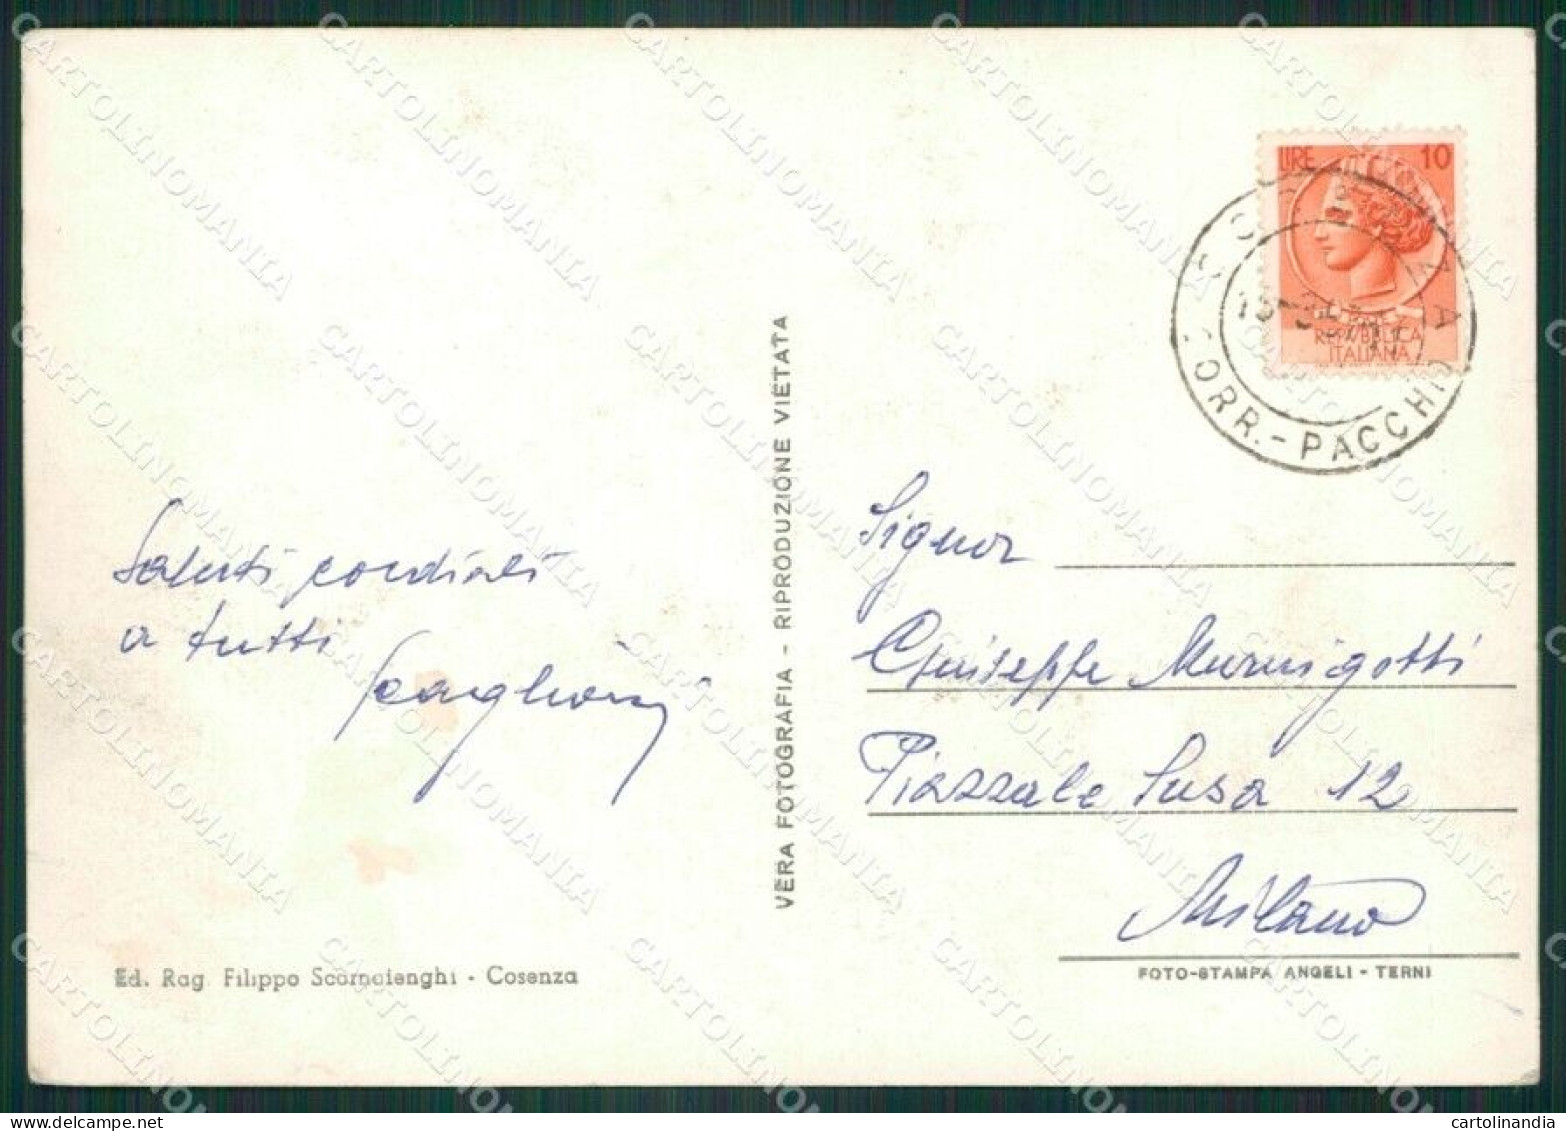 LIRE 10
REPVBBLICA
ITALIANA
CORR.-PACCHI
Saluti cordiali
a tutti
VERA FOTOGRAFIA - RIPRODUZIONE VIETATA
Signor
Giuseppe Murnigotti
Piazzale Susa 12
Milano
Ed. Rag. Filippo Scornaienghi - Cosenza
FOTO-STAMPA ANGELI - TERNI
CARTOLINOMANIA
cartolinandia